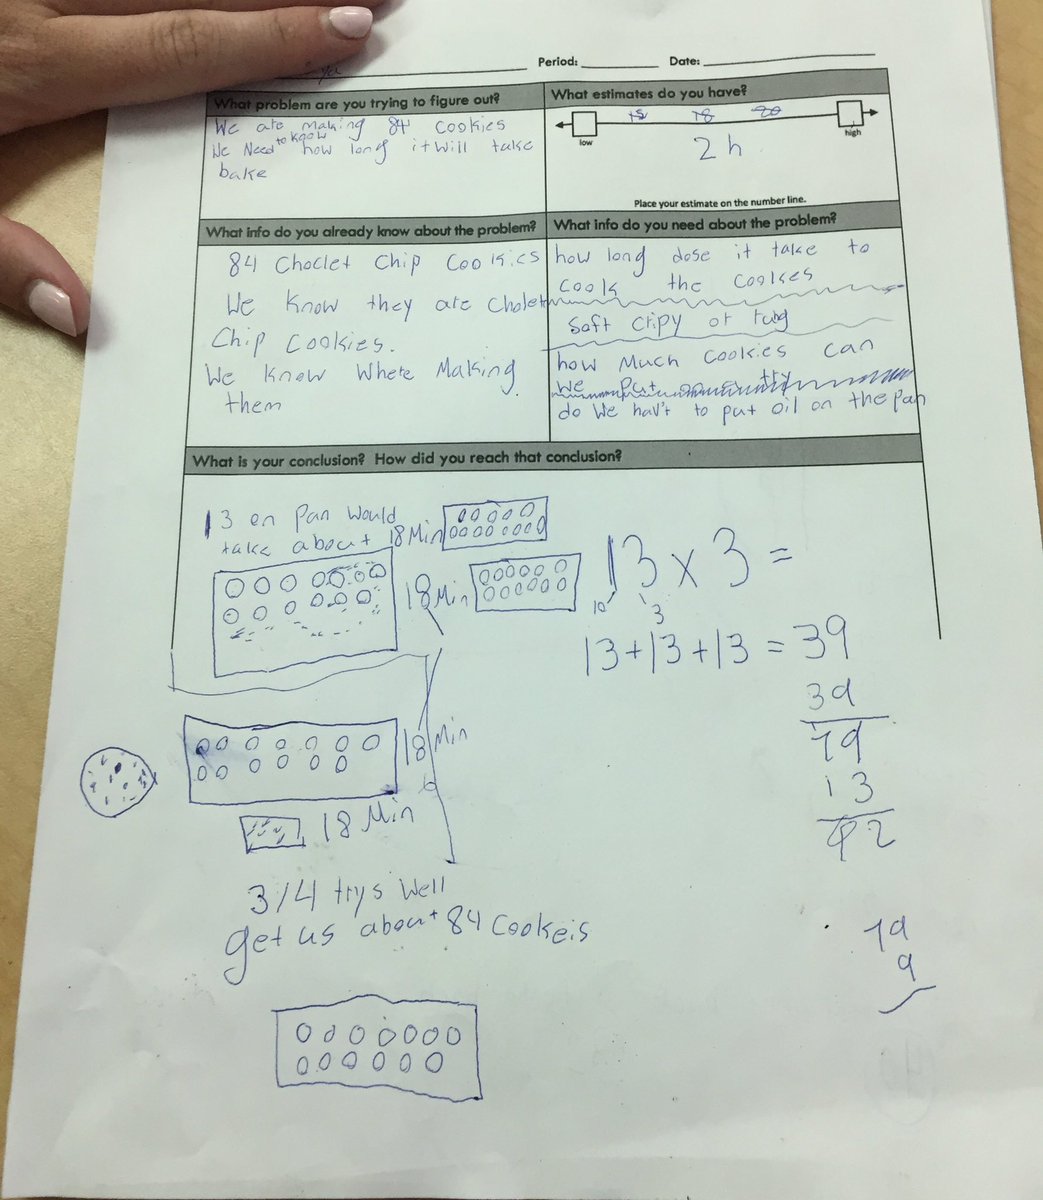 Period: Date:
What problem are you trying to figure out?
We are making 84 Cookies
We Need to know how long it will take
bake
What estimates do you have?
15 18 20
low
high
2 h
Place your estimate on the number line.
What info do you already know about the problem?
84 Choclet Chip Cookies
We know they are Cholet
Chip Cookies.
We know Where Making
them
What info do you need about the problem?
how long dose it take to
cook the cookes
Soft cripy or
how Much Cookies can
We Put on a try
do We hav't to put oil on the pan
What is your conclusion? How did you reach that conclusion?
13 en Pan Would
take about 18 Min
18 Min
18 Min
18 Min
3/4 trys Well
get us about 84 Cookeis
13 x 3 =
10 3
13+13+13 = 39
39
79
13
92
79
9